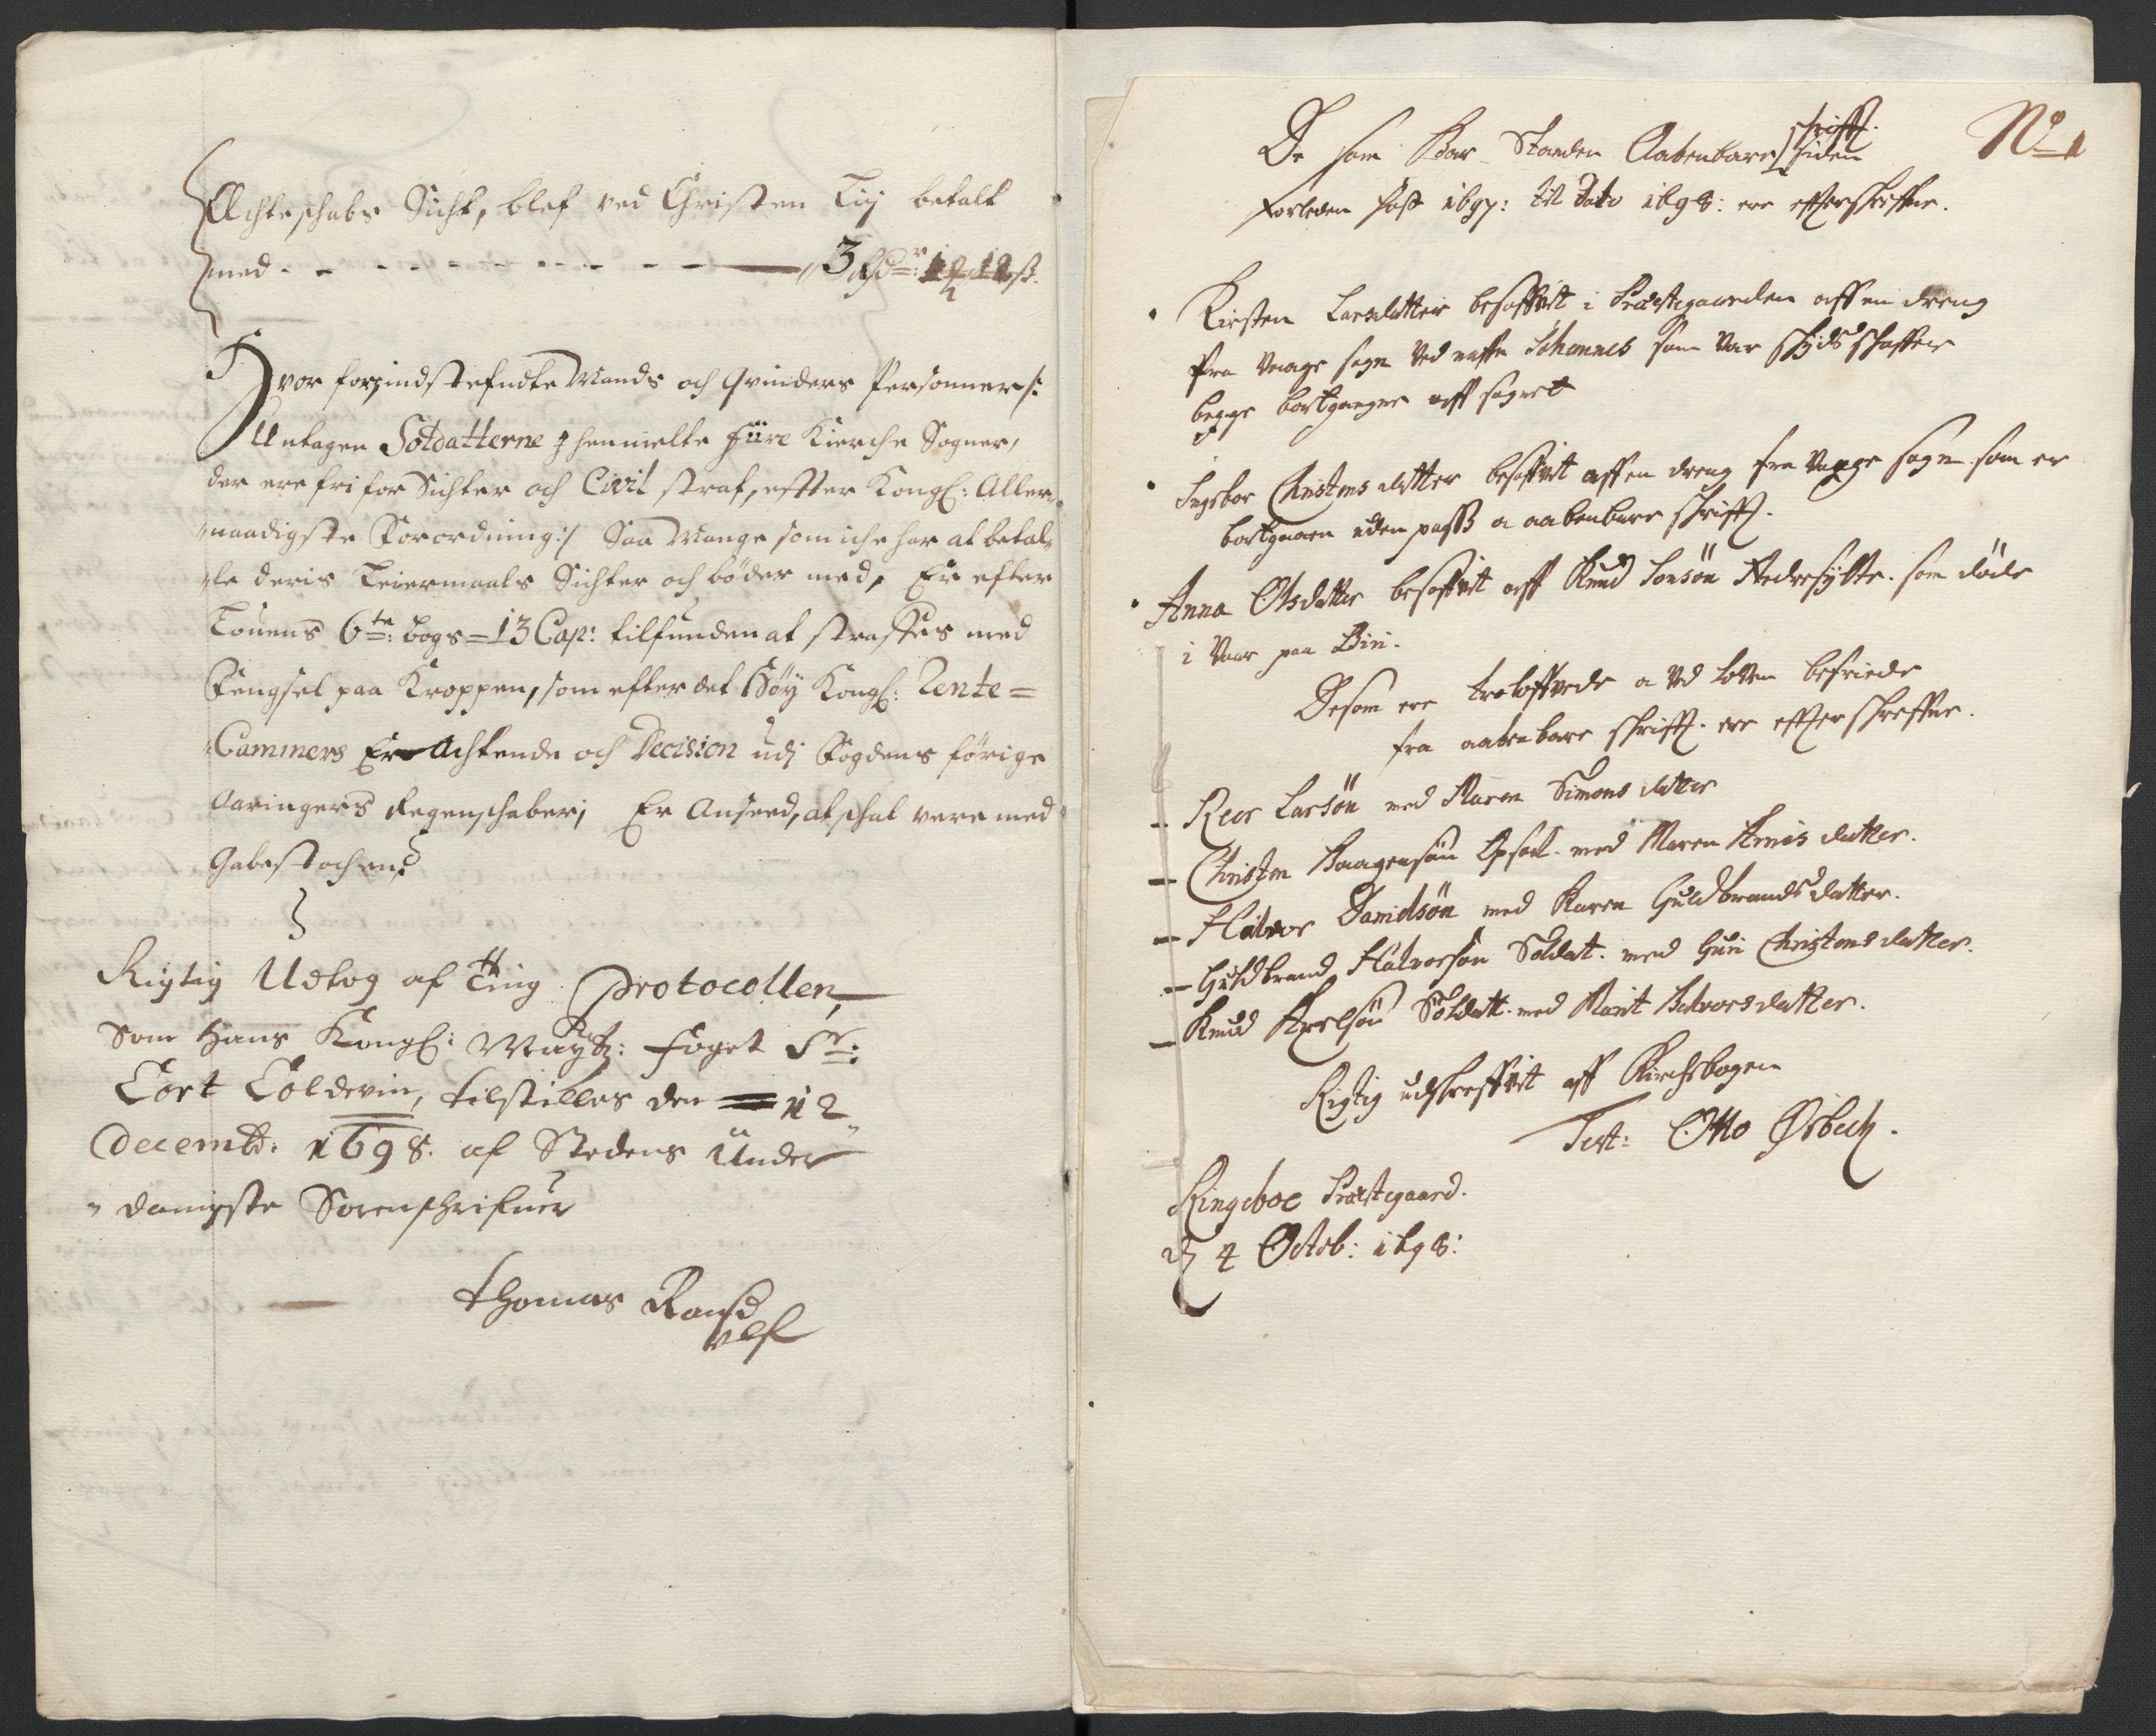 Echteschabs Sicht, blef ved Christen Lij betalt
med - - - - - - - - - - 3 Rdr: 1 12 ß.
Hvor forr indstefndte Mands och Qvinders Personner /:
Untagen Soldatterne j hermelte fiire Kierche Sogner,
der ere fri for Sichter och Civil straf, efter Kongl: Aller,,
,,naadigste Forordning :/ Saa Mange som iche har at betal,,
,,le deris Leiermaals Sichter och bøder med, Er efter
Louens 6te: bogs = 13 Cap: tilfunden at straffes med
Fengsel paa Kroppen, som efter det Høy Kongl: Rente=
Cammers Er Achtende och Decision udj Fogdens förige
Aaringers Regenschaber; Er Anseed, at schal vere med
Gabestochen
Rigtig Udtog af Ting Protocollen,
Som Hans Kongl: Maytz: foget Sr:
Cort Coldevin, tilstilles den 12
Decemb: 1698. af Stedens Under
,,danigste Sorenschrifuer
Thomas
No 1
De som Har Standen Aabenbare schrifft siden
forleden høst 1697: til dato 1698: ere effterschreffne.
Kirsten Larsdatter besoffvit i Præstegaarden aff en dreng
fra Vaage sogn ved naffn Johannes som var schydsschaffer
begge bortgangne aff sognet
Ingebor Christensdatter besoffvit aff en dreng fra Vaage sogn som er
bortgaaen uden pass a aabenbare schrifft.
Anna Olsdatter besoffvit aff Knud Jonsön som döde
i Vaar paa Biri.
De som ere troloffvede a ved loven befriede
fra aabenbare schrifft. ere effterschreffne.
- Peer Larsön med Maren Simonsdatter
- Christen Haagensön Opsal. med Maren Arnisdatter.
- Halvor Davidsön med Karen Guldbrandsdatter.
- Guldbrand Halvorsön Soldat. med Guri Christensdatter.
- Knud Axelsön Soldatt. med Marit Halvorsdatter.
Rigtig udschreffvit aff Kirchebogen
Test: Otto Ørbech.
Ringeboe Præstegaard.
d 4 Octob: 1698: